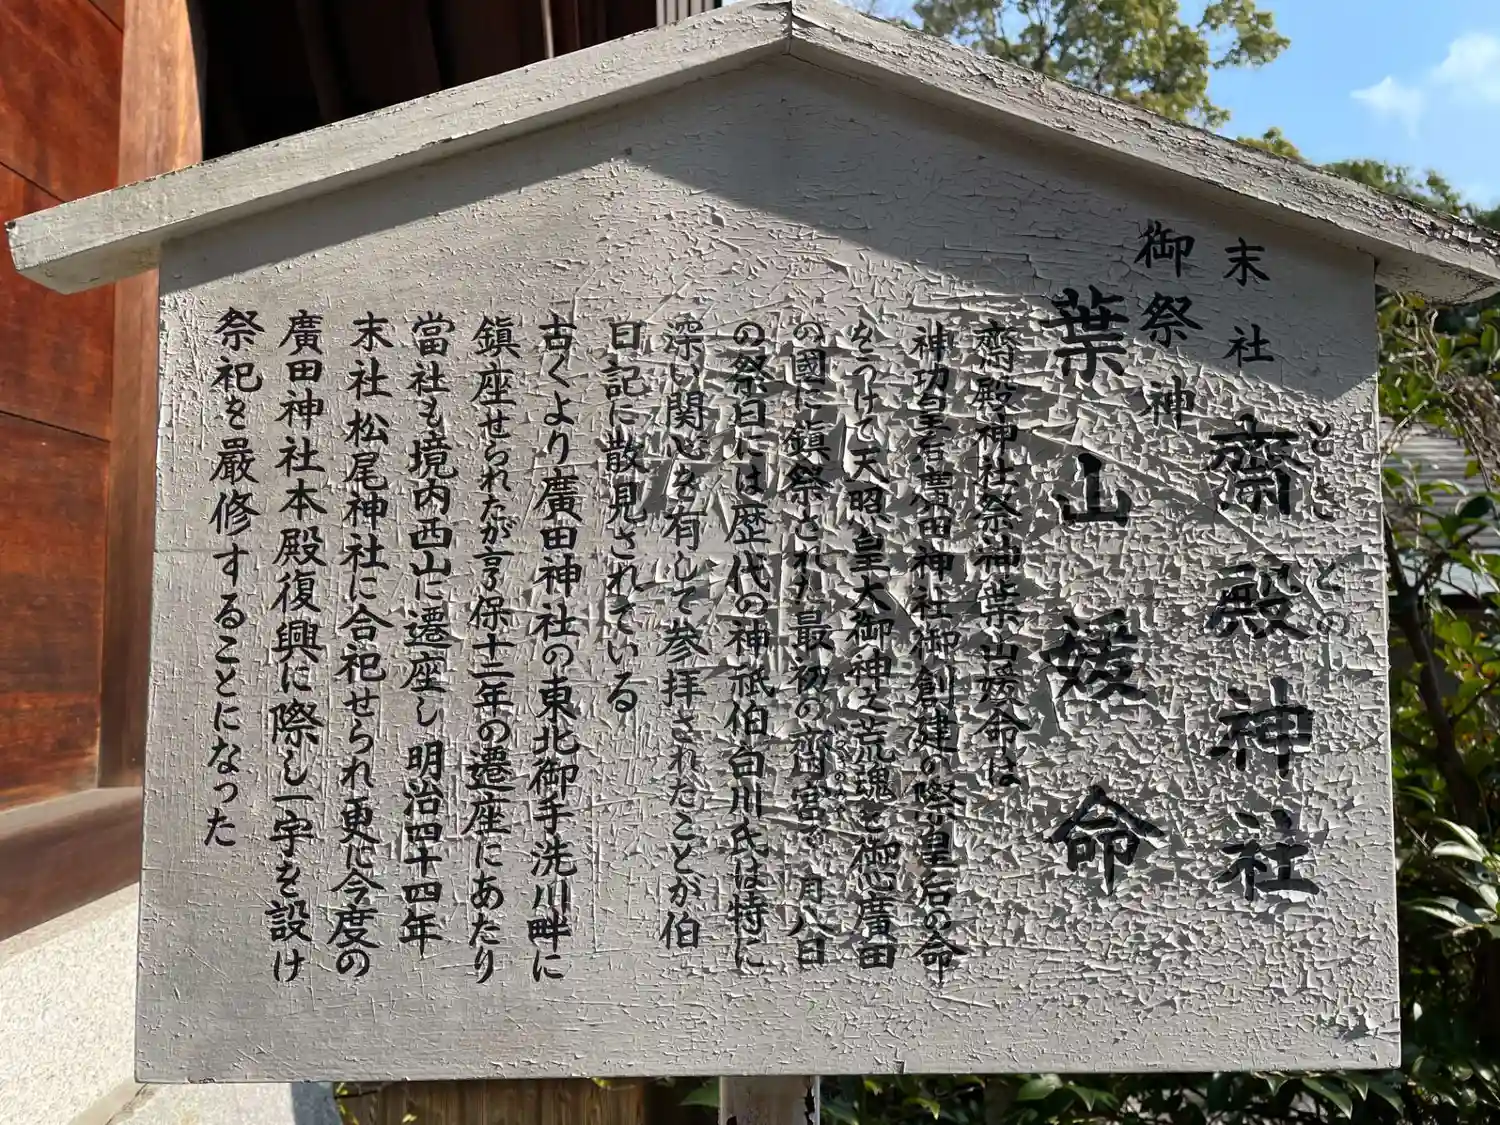 末社 齋殿神社
とき どの
御祭神
葉山媛命
齋殿神社祭神葉山媛命は
神功皇后廣田神社御創建の際皇后の命
をうけて天照皇大御神之荒魂を御心廣田
の國に鎭祭された最初の齋宮で 月八日
の祭日には歴代の神祇伯白川氏は特に
深い関心を有して参拝されたことが伯
日記に散見されている
古くより廣田神社の東北御手洗川畔に
鎭座せられたが享保十二年の遷座にあたり
當社も境内西山に遷座し明治四十四年
末社松尾神社に合祀せられ更に今度の
廣田神社本殿復興に際し一宇を設け
祭祀を嚴修することになった